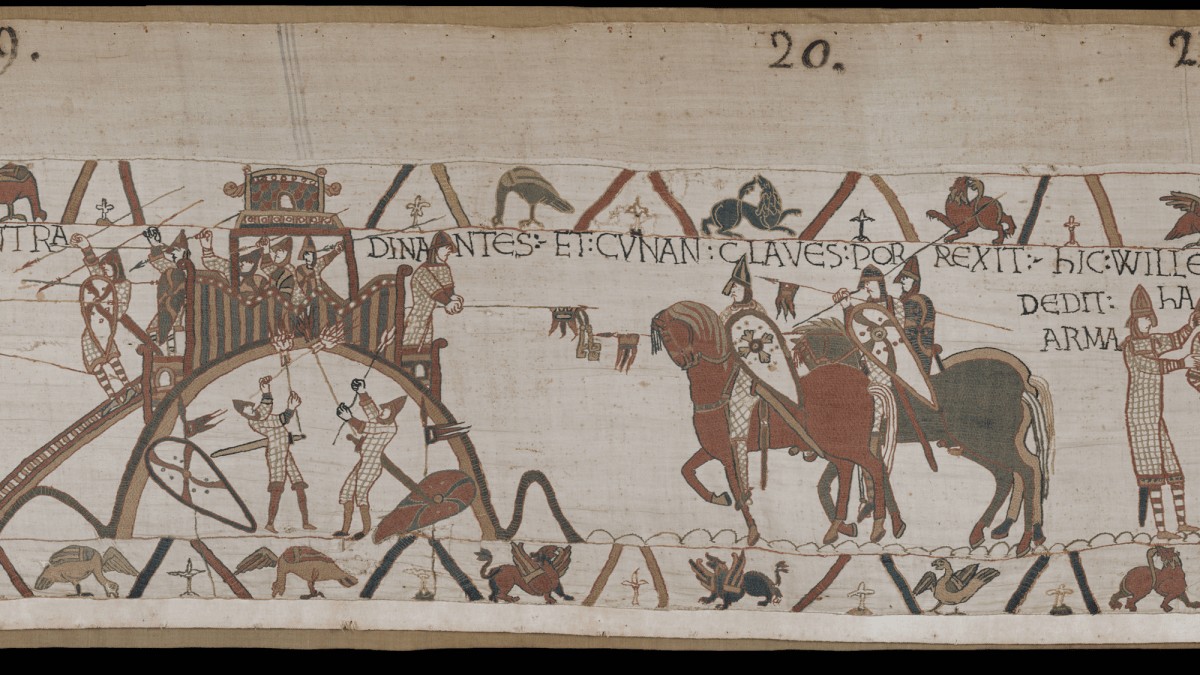 9. 20. 2
NTRA DINANTES:- ET:CVNAN:CLAVES:POR REXIT:- hIC:WILLE
DEDIT: hA
ARMA